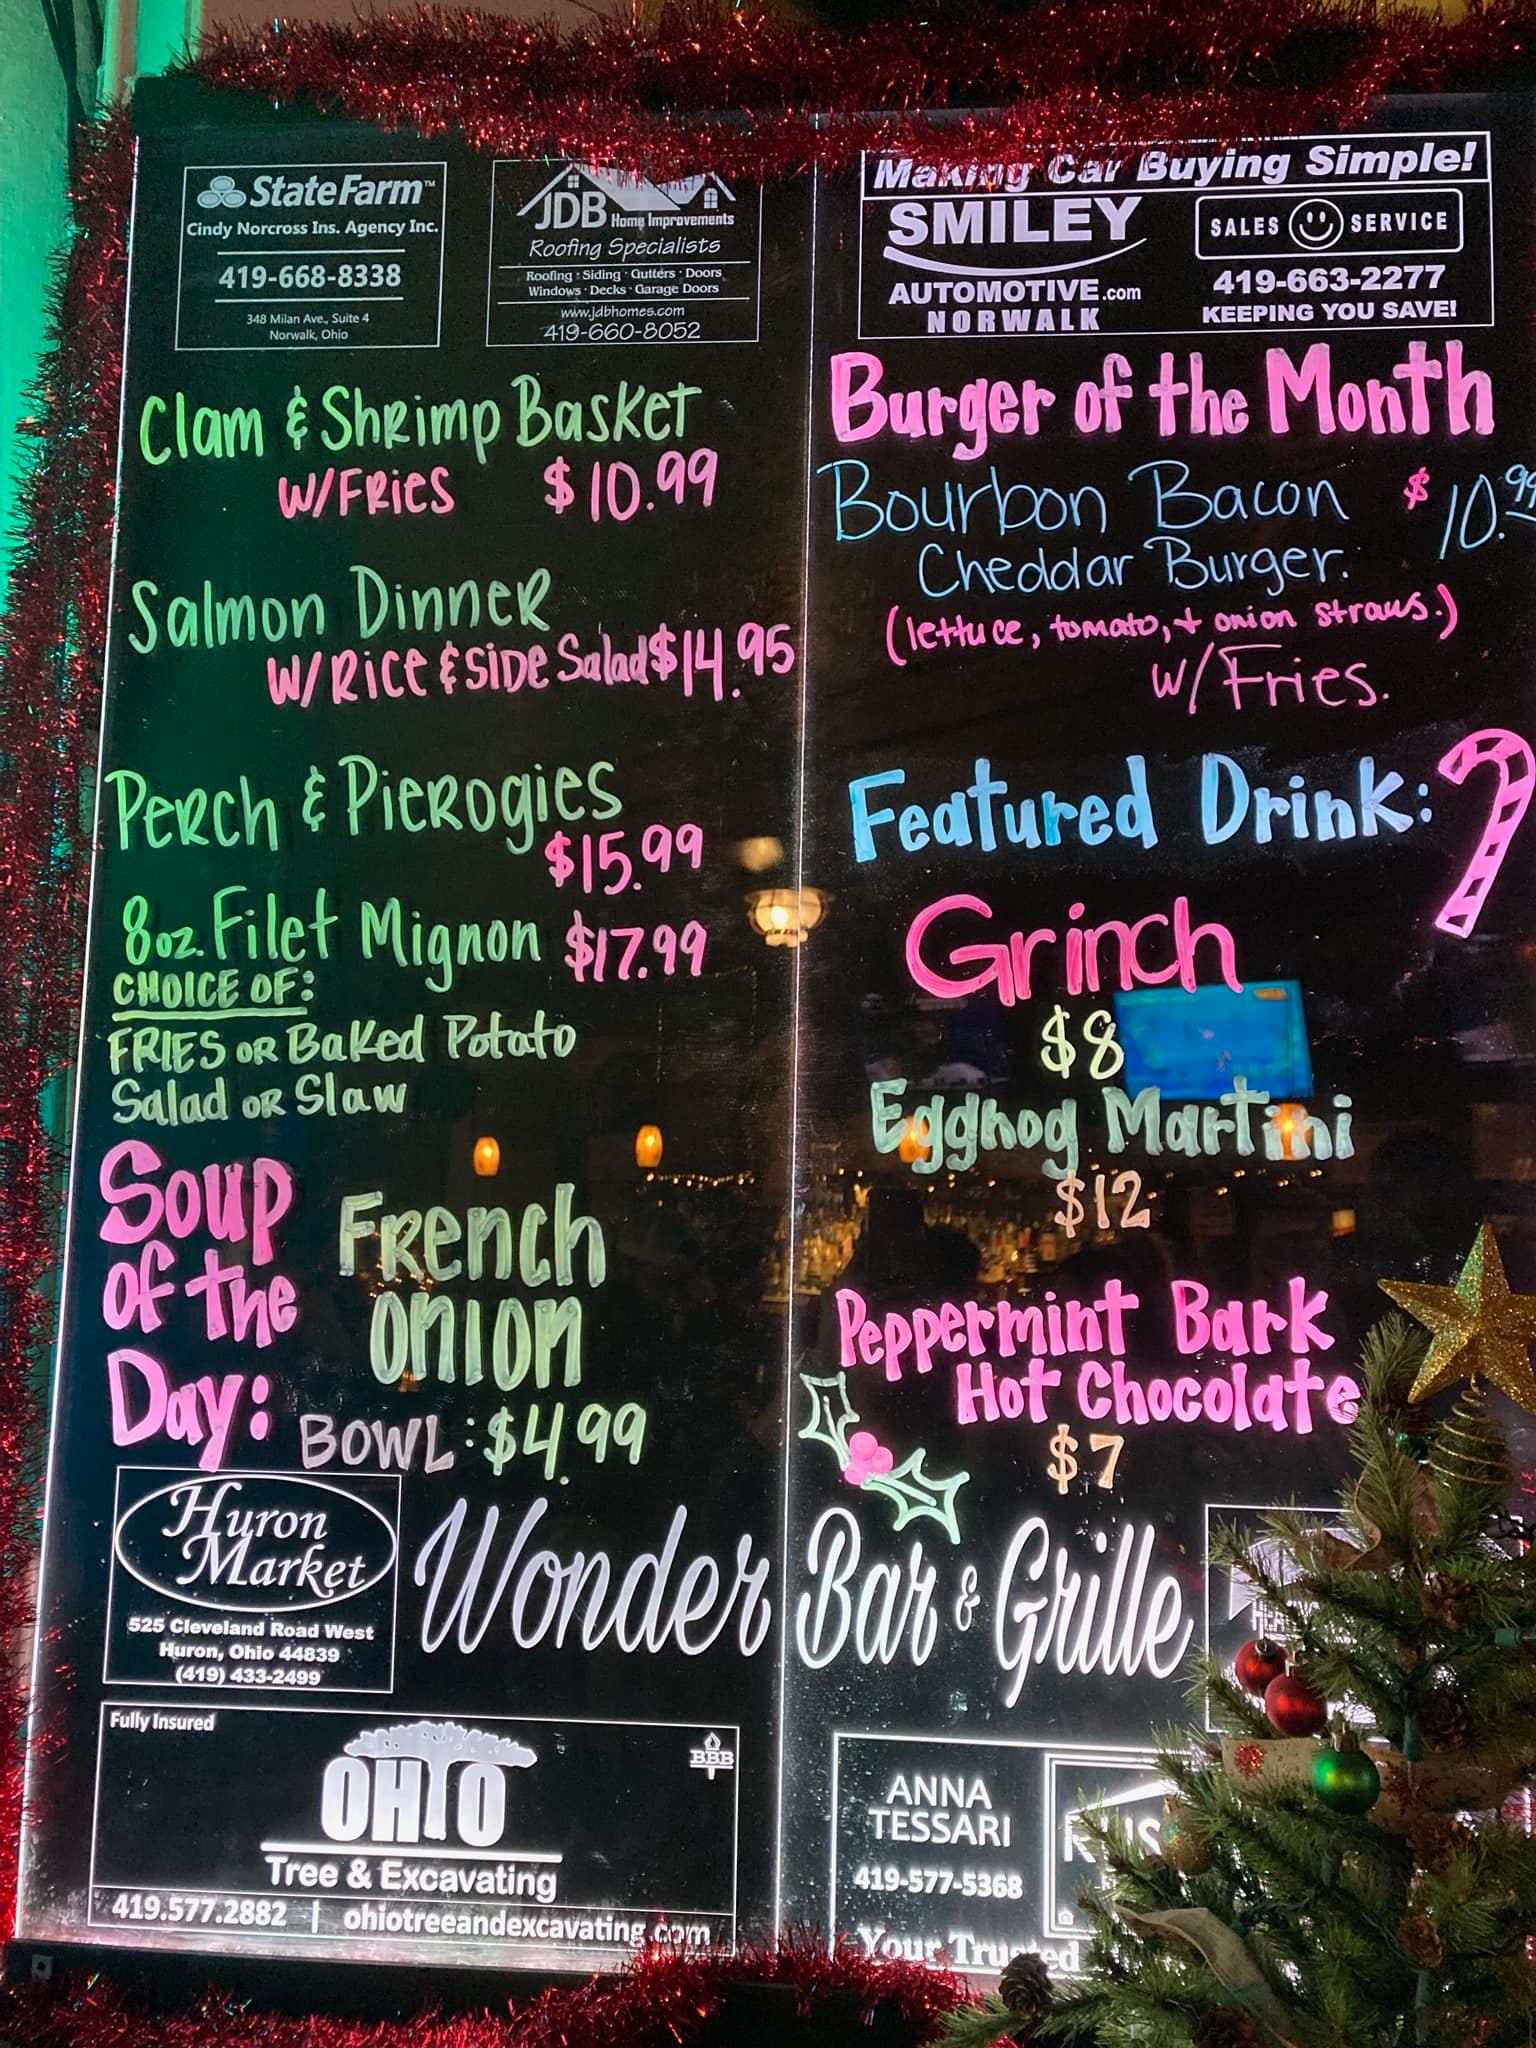 StateFarm™
Cindy Norcross Ins. Agency Inc.
419-668-8338
348 Milan Ave., Suite 4
Norwalk, Ohio
JDB Home Improvements
Roofing Specialists
Roofing · Siding · Gutters · Doors
Windows · Decks · Garage Doors
www.jdbhomes.com
419-660-8052
Clam & Shrimp Basket
W/FRies $10.99
Salmon Dinner
W/Rice & Side Salad $14.95
Perch & Pierogies
$15.99
8oz. Filet Mignon $17.99
CHOICE OF:
FRIES OR Baked Potato
Salad OR Slaw
Soup
of the
Day:
French
Onion
BOWL: $4.99
Huron
Market
525 Cleveland Road West
Huron, Ohio 44839
(419) 433-2499
Fully Insured
BBB
OHIO
Tree & Excavating
419.577.2882 | ohiotreeandexcavating.com
Making Car Buying Simple!
SMILEY
AUTOMOTIVE.com
NORWALK
SALES SERVICE
419-663-2277
KEEPING YOU SAVE!
Burger of the Month
Bourbon Bacon $10.99
Cheddar Burger.
(lettuce, tomato, + onion straws.)
w/Fries.
Featured Drink:
Grinch
$8
Eggnog Martini
$12
Peppermint Bark
Hot Chocolate
$7
Wonder Bar & Grille
ANNA
TESSARI
419-577-5368
Your Trusted